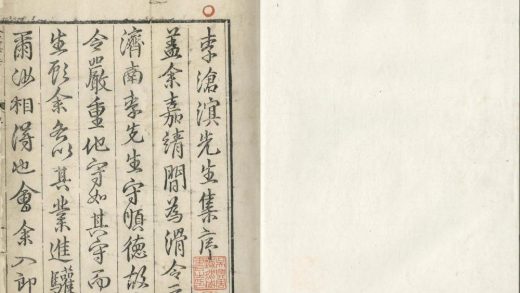 李滄溟先生集序
蓋余嘉靖間為滑令
濟南李先生守順德故
令嚴重他守如其守而
生頋余各以其業進驩
爾汝相得也會余入郎